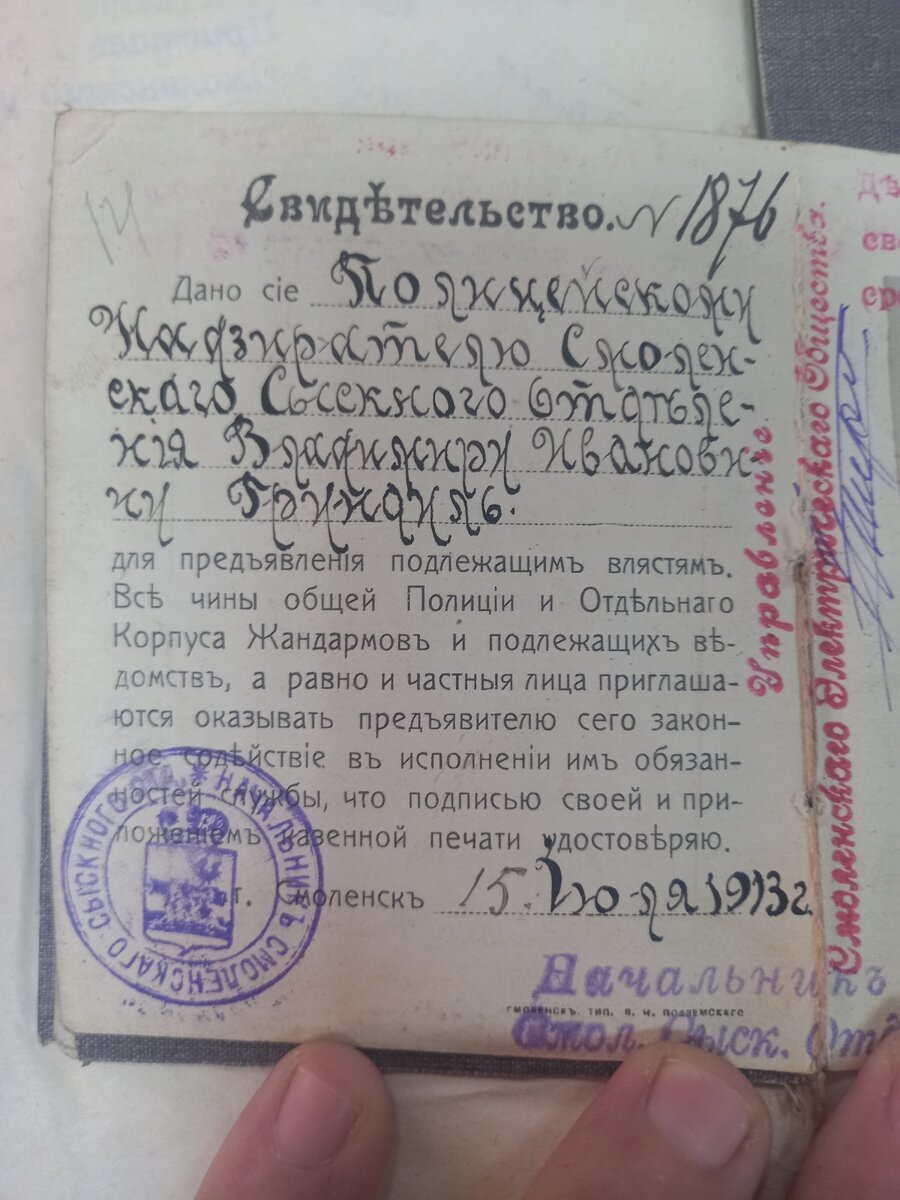 14
Свидѣтельство. N 1876
Дано сіе Полицейскому
Надзирателю Смолен-
скаго Сыскного Отдѣле-
нія Владимиру Иванови-
чу
для предъявленія подлежащимъ влястямъ.
Всѣ чины общей Полиціи и Отдѣльнаго
Корпуса Жандармовъ и подлежащихъ вѣ-
домствъ, а равно и частныя лица приглаша-
ются оказывать предъявителю сего закон-
ное содѣйствіе въ исполненіи имъ обязан-
ностей службы, что подписью своей и при-
ложеніемъ казенной печати удостовѣряю.
г. Смоленскъ 15. Іюля 1913 г.
НАЧАЛЬНИКЪ СМОЛЕНСКАГО СЫСКНОГО ОТД.
Начальникъ
Смол. Сыск. Отд
СМОЛЕНСКЪ. ТИП. Я. Н. ПОДЗЕМСКАГО
Управленіе
Смоленскаго Электрическаго Общества.
Дѣ
св
ср